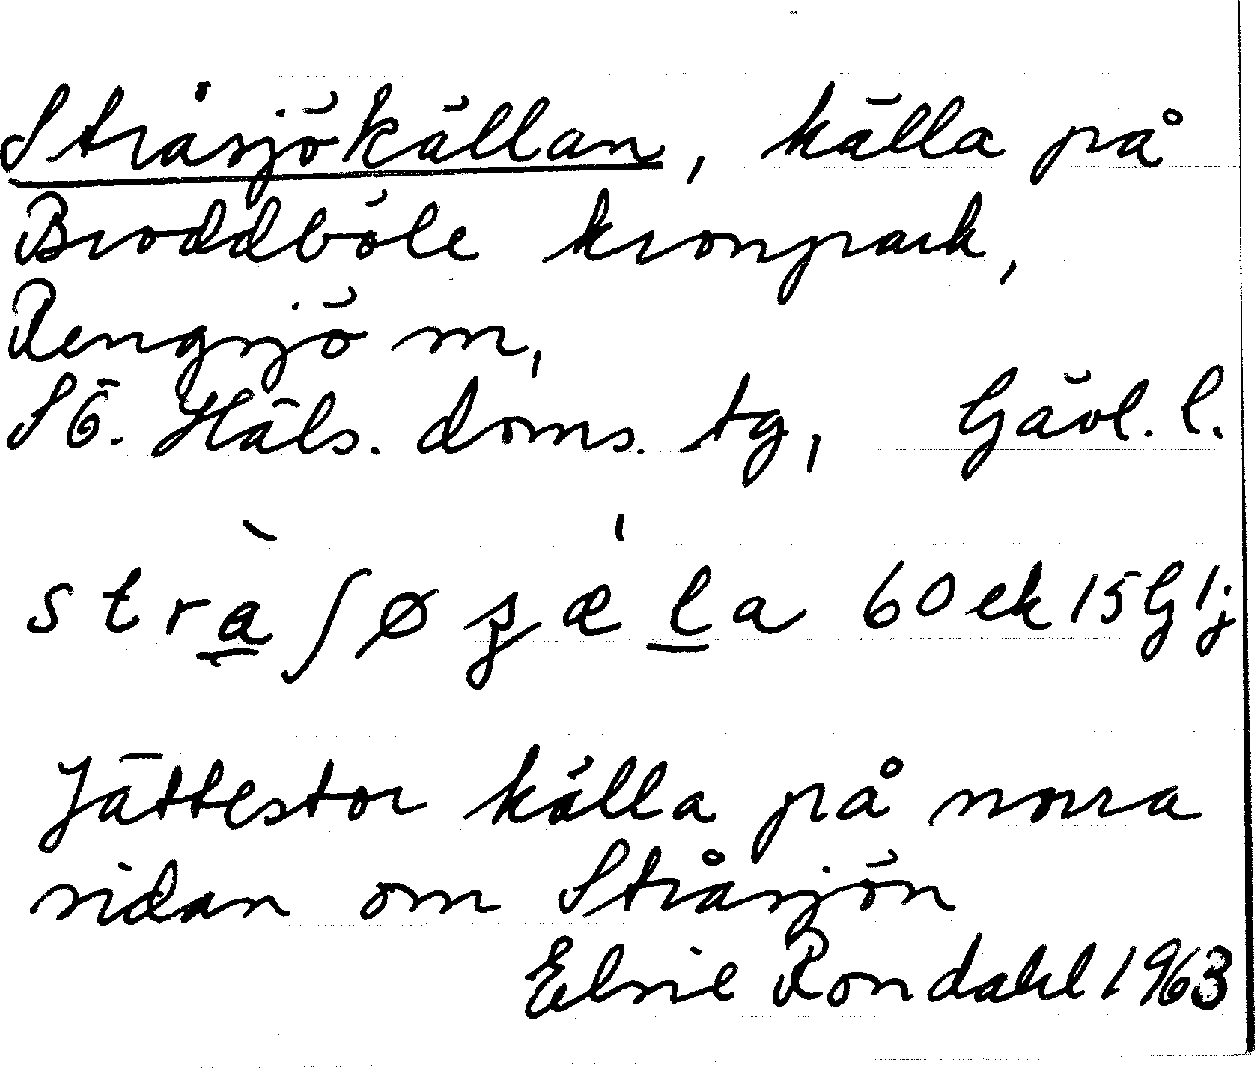 Stråsjökällan, källa på
Broddböle kronpark,
Rengsjö sn,
SÖ. Häls. doms. tg, Gävl. l.
60 ek 15 G 1j
Jättestor källa på norra
sidan om Stråsjön
Elsie Rondahl 1963